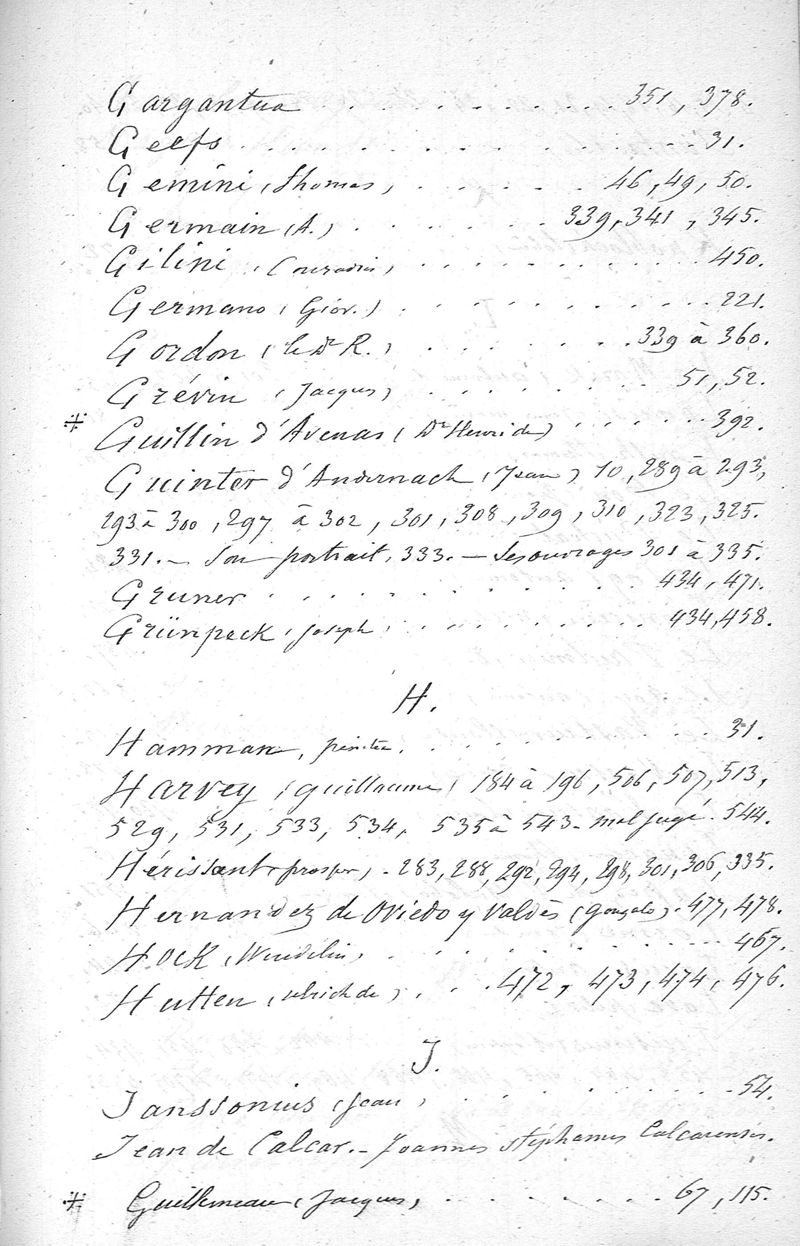 Gargantua . . . . . . . . . 351, 378.
Geefs . . . . . . . . . . . . 31.
Gemini (Thomas) . . . . . . 46, 49, 50.
Germain (A.) . . . . . . 339, 341, 345.
Gilini (Conradin) . . . . . . . . 450.
Germano (Giov.) . . . . . . . . . 221.
Gordon (le Dr R.) . . . . . . 339 à 360.
Grévin (Jacques) . . . . . . . 51, 52.
⁜ Guillin d'Avenas (Dr Henri de) . . . . . . 392.
Guinter d'Andernach (Jean) 10, 289 à 293,
293 à 300, 297 à 302, 301, 308, 309, 310, 323, 325.
331. — Son portrait, 333. — Ses ouvrages 301 à 335.
Gruner . . . . . . . . . . 434, 471.
Grünpeck (Joseph) . . . . . . . 434, 458.
H.
Hamman, peintre. . . . . . . . . 31.
Harvey (Guillaume) 184 à 196, 506, 507, 513,
529, 531, 533, 534, 535 à 543 - mal jugé. 544.
Hérissant (prosper) - 283, 288, 292, 294, 298, 301, 306, 335.
Hernandez de Oviedo y Valdès (Gonzalo) . 477, 478.
Hock (Wendelin) . . . . . . . . . 467.
Hutten (Ulrich de) . . . 472, 473, 474, 476.
J.
Janssonius (Jean) . . . . . . . . 54.
Jean de Calcar. — Joannes Stéphanus Calcarensis.
⁜ Guillemeau (Jacques) . . . . . . 67, 115.